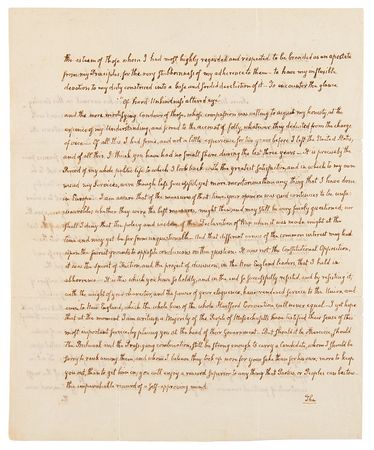 the esteem of those whom I had most highly regarded and respected, to be branded as an apostate
from my Principles, for the very stubbornness of my adherence to them – to have my inflexible
devotion to my duty construed into a base and sordid dereliction of it – To encounter the glance
"Of hard Unkindness' altered eye"
and the more mortifying candour of those, whose compassion was willing to my honesty at the
expence of my Understanding, and to the account of folly, whatever they deducted from the charge
of vice – Of all this I had some, and not a little experience, for two years before I left the United States,
and of all this I think you have had no small share during the last three years – It is precisely the
Period of my whole public life to which I look back with the greatest satisfaction, and in which to my own
mind my Services, even though less successful, yet more meritorious than any thing that I have done
in Europe. I am aware that of the measures of that time your opinion was and continues to be unfavourable;
whether they were the best measures, might then and may still be very fairly questioned, nor
shall I deny that the policy and of the Declaration of War when it was made might at the
time and may yet be far from unquestionable. And that different views of the common interest may lead
upon the purest grounds to opposite conclusions on the question – It was not the Constitutional Opposition,
it was the spirit of faction, and the project of disunion, in the New England leaders, that I held in
abhorrence – It is this which you have so boldly, and in the end so successfully resisted and by resisting it,
with the weight of your character and the power of your eloquence, have rendered service to the Union and
even to New England, which the whole line of the whole Hartford Convention will never equal – I yet hope
that at the moment I am writing a Majority of the People of Massachusetts have testified their sense of this
most important service, by placing you at the head of their Government. – But should it be otherwise, should
the and the Essex combination, still be strong enough to carry a Candidate, whom I should be
sorry to rank among them, and whom I believe they took up more for your sake than for his own; more to keep
you out, than to get him in; you will enjoy a reward superior to any thing that Parties, or Peoples can bestow –
The imperishable reward of a self approving mind.
The